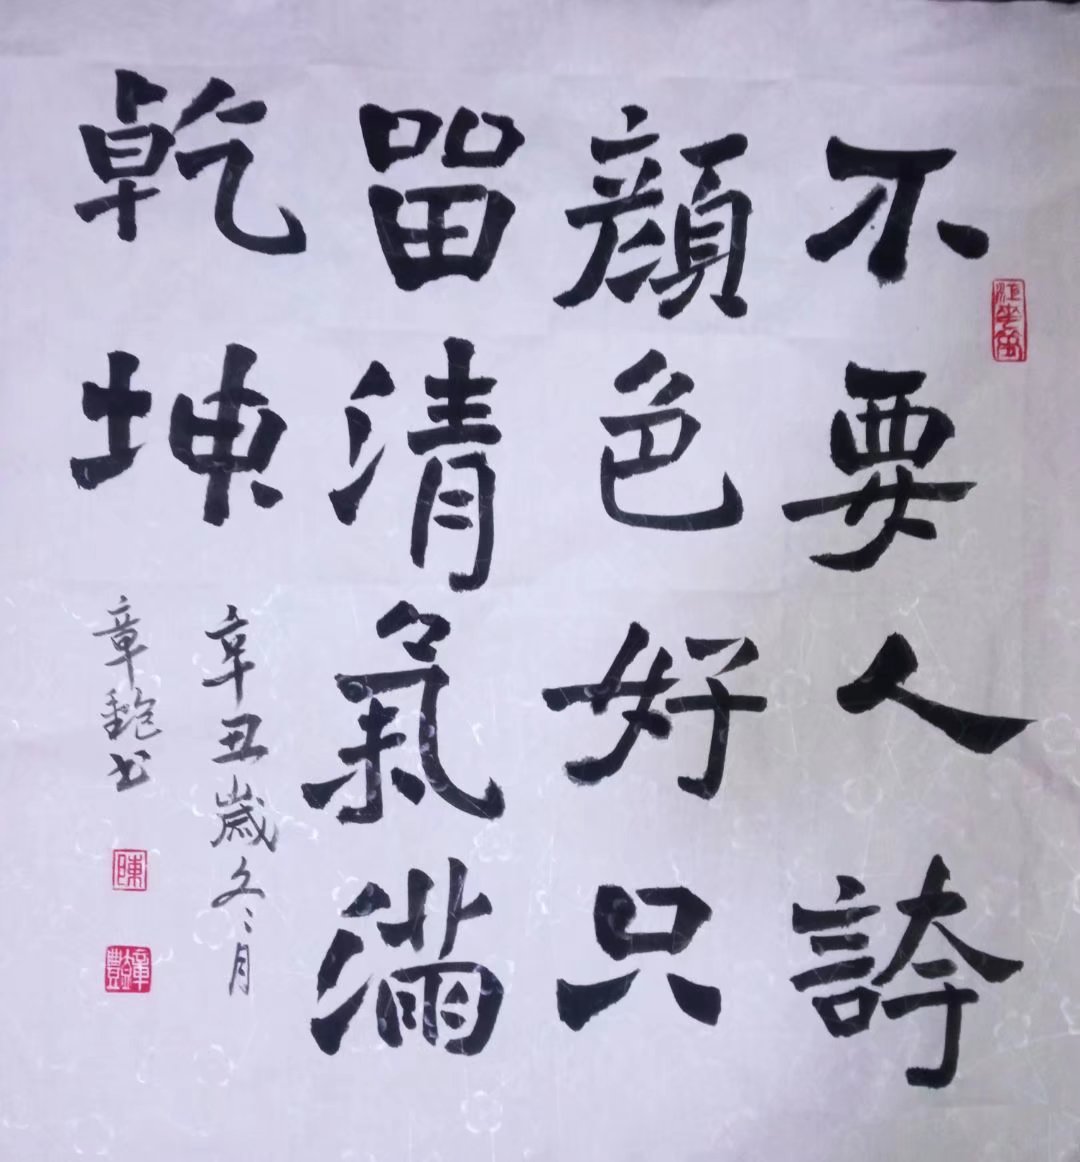 不要人誇
顏色好只
留清氣滿
乾坤
辛丑歲冬月
章艷书
陳